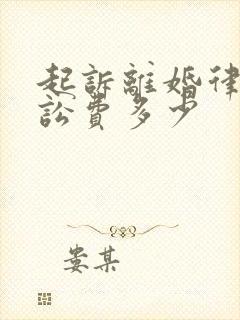 起訴離婚律
訟費多少
娄某